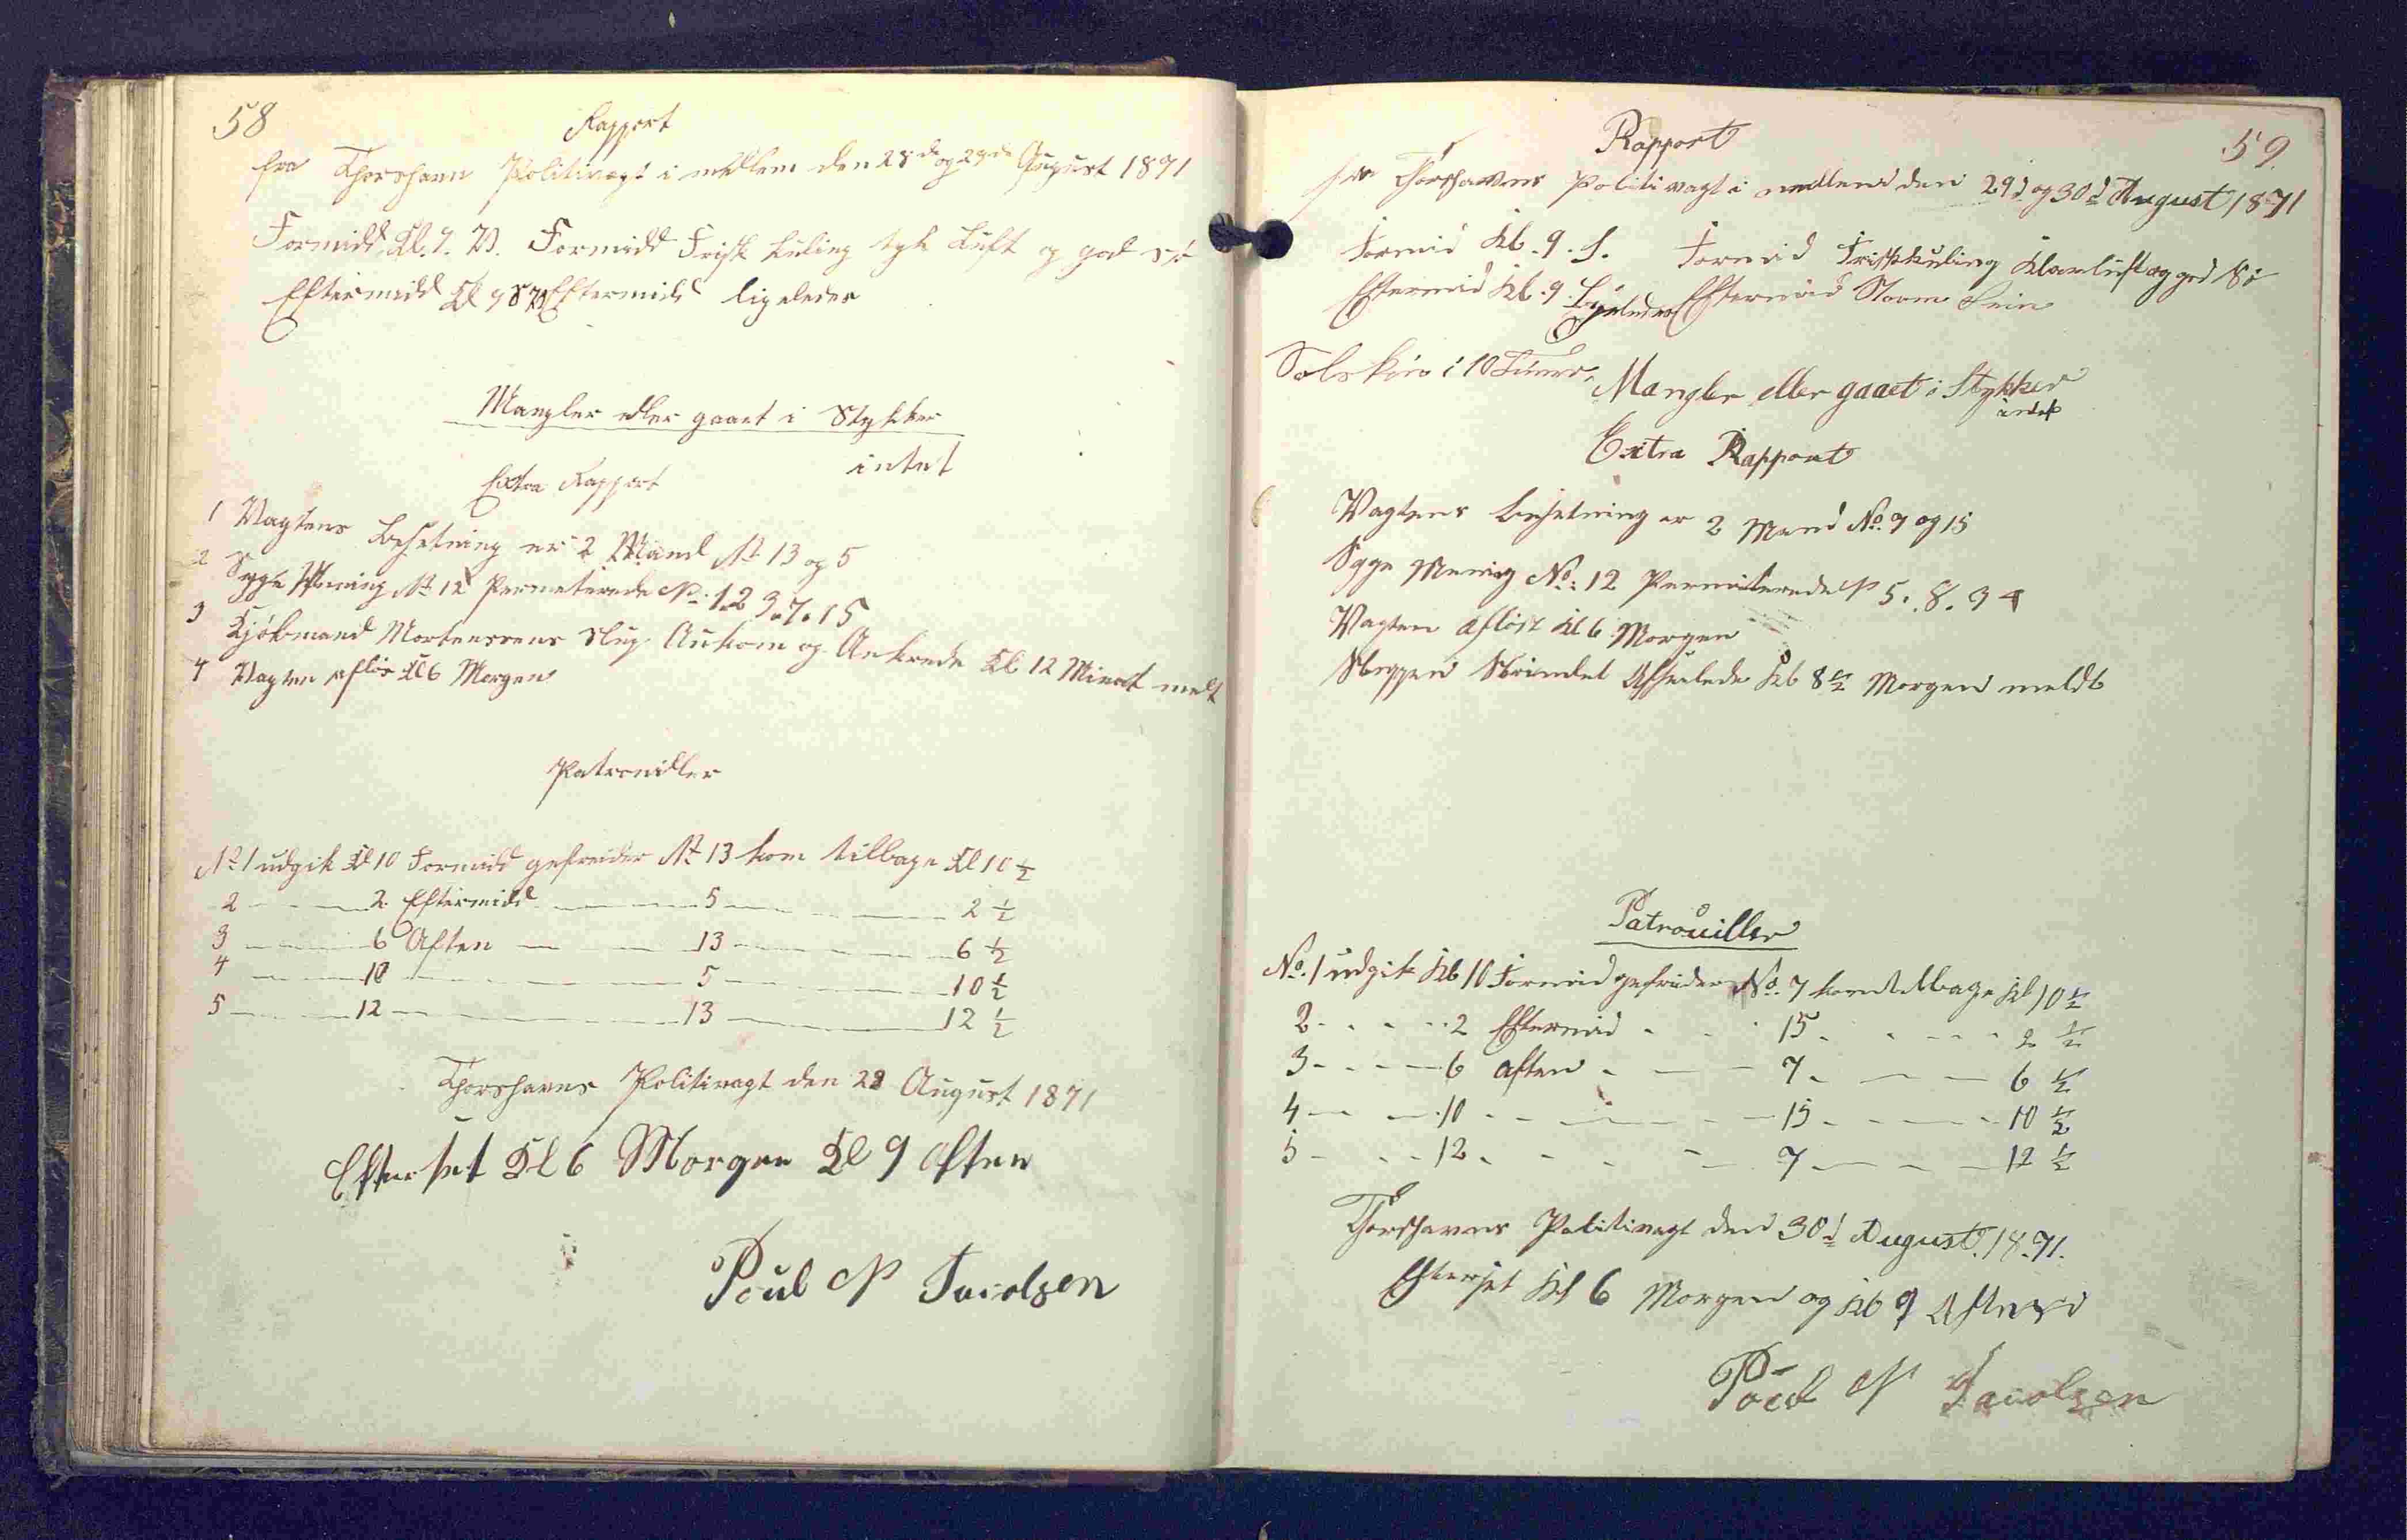 58
Rapport
fra Thorshavn Politivagt i mellem den 28de og 29de August 1871
Formidd Kl. 9. V. Formidd Frisk Kuling tyk Luft og god Sö
Eftermidd Kl 9 SV Eftermidd ligeledes
Mangler eller gaaet i Stykker
intet
Extra Rapport
1 Vagtens Besetning er 2 Mand No 13 og 5
2 Syge Mening No 12 Permeterede No 1.2 3.7.15
3 Kjöbmand Mortensens Slup Ankom og Ankrede Kl 12 Minat melt
4 Vagten aflös Kl 6 Morgen
Patrouiller
No 1 udgik Kl 10 Formidd gefreider No 13 kom tilbage Kl 10 1/2
2 2 Eftermidd 5 2 1/2
3 6 Aften 13 6 1/2
4 10 5 10 1/2
5 12 13 12 1/2
Thorshavns Politivagt den 29 August 1871
Efterset Kl 6 Morgen Kl 9 Aften
Poul N Jacobsen
59.
Rapport
fra Thorshavns Politivagt i mellem den 29d og 30d August 1871
Formid Kl. 9. S. Formid Frisk kuling Klarluft og god Sö
Eftermid Kl. 9 Ligeledes Eftermid Storm
Solskin i 10 Timer.
Mangler eller gaaet i Stykker
intet
Extra Rapport
Vagtens besetning er 2 Mend No. 7 og 15
Syge Mening No: 12 Permiterede N 5. 8. 3 4
Vagten aflöst Kl 6 Morgen
Skeppen Afseilede Kl 8 1/2 Morgen meldt
Patrouiller
No. 1 udgik Kl 10 Formid gefreider No. 7 kom tilbage Kl 10 1/2
2 2 Eftermid 15 2 1/2
3 6 aften 7 6 1/2
4 10 15 10 1/2
5 12 7 12 1/2
Thorshavns Politivagt den 30d August. 1871.
Efterset Kl 6 Morgen og Kl 9 Aften
Poul N Jacobsen